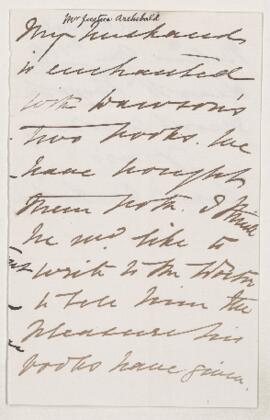 Mr Justice Archibald
My husband
is enchanted
with Dawson's
two books. We
have bought
them both. I think
he wd. like to
write to Mr
to tell him the
pleasure his
books have given